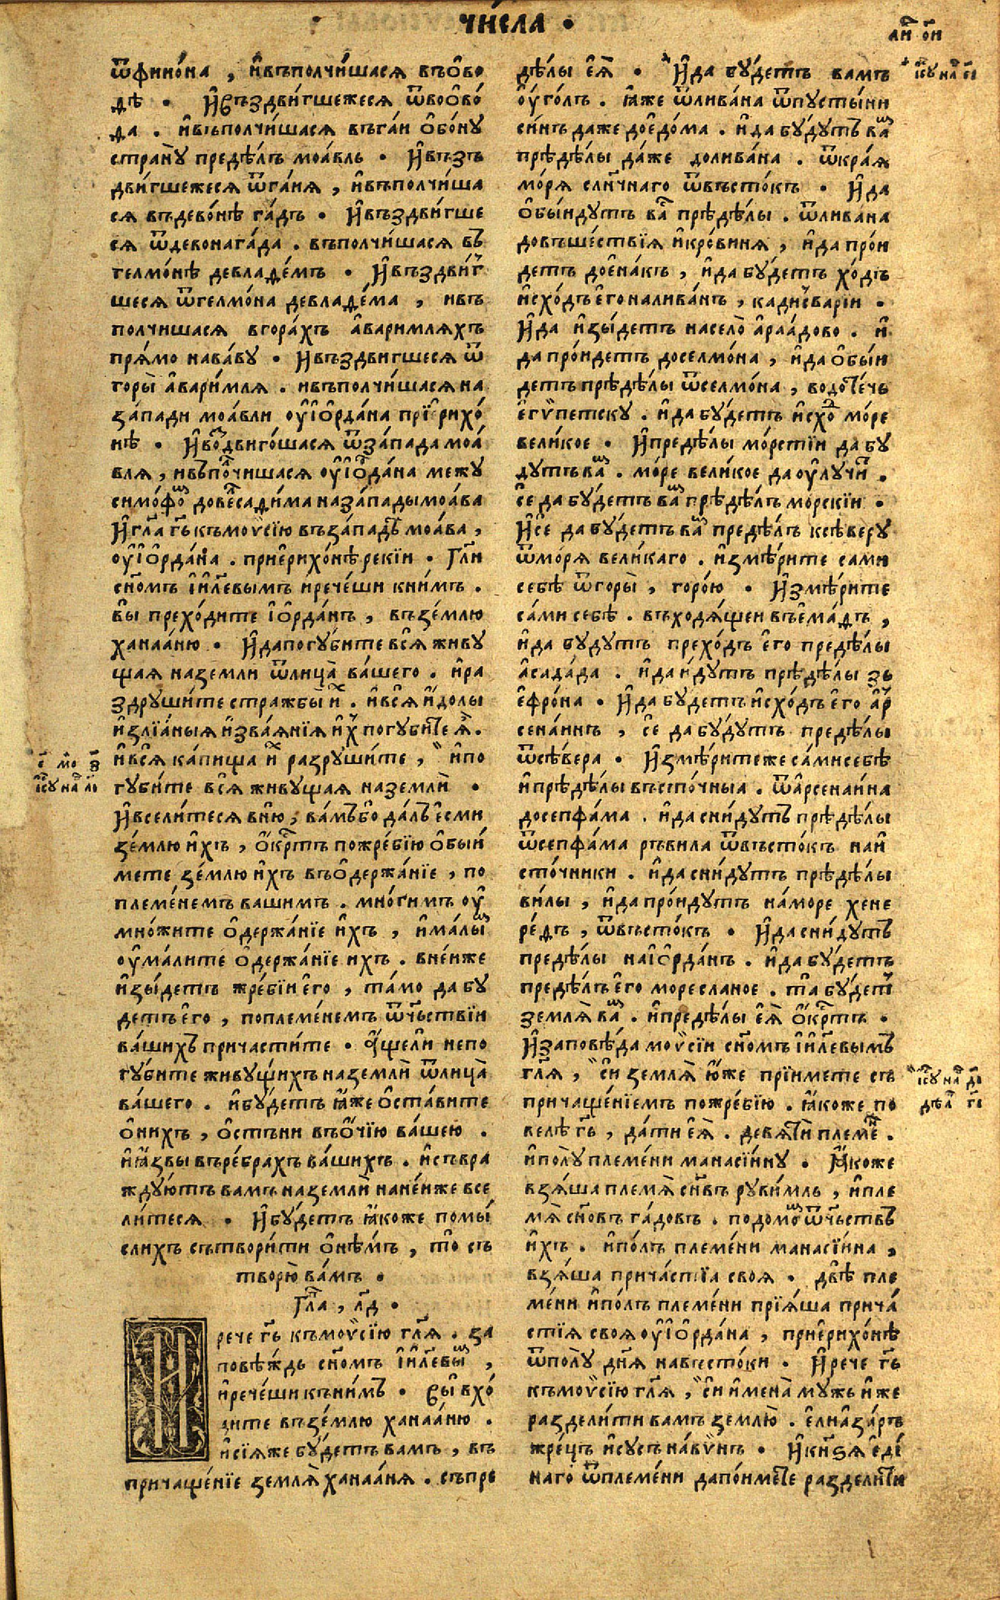 чи́сла •
ли҃ ѻ҃и
ѿфино́на , и҆въполчи́шася въѻ҆во
дѣ • И҆въздви́гшежеся ѿвоѻ҆во́
да . и҆въполчи́шася въга́и ѻ҆бо́нꙋ
странꙋ̀ предѣ́лъ моа́вль • И҆възъ
дви́гшежеся ѿга́ия , и҆въполчи́ша
ся въдево́нѣ га́дъ • И҆въздви́гше
ся ѿдевонага́да . въполчи́шася въ
гелмо́нѣ девладе́мъ • И҆въздви́г
шеся ѿгелмо́на девладе́ма , ивъ
полчишася вгора́хъ а҆варимляхъ
пря́мо нава́вꙋ • И҆въздвигшеся ѿ
горы̀ а҆вари́мля . ивъполчи́шася на
за́пади моа́вли ᲂу҆і҆ѻ҆рда́на прїерихо́
нѣ • И҆воздвиго́шася ѿза́пада моа́
вля , ивъполчишася ᲂу҆і҆ѻ҆рда́на межꙋ
симо́фѿ дове́лсади́ма наза́пады моа́ва
И҆гл҃а гд҇ь къмоѵ҆се́ю въза́падъ моа́ва ,
ᲂу҆і҆ѻ҆рда́на . приерихо́нѣ рекїи • Гл҃и
сн҃омъ і҆и҃левымъ и҆рече́ши книмъ .
вы̀ прехо́дите і҆ѻ҆рда́нъ , въземлю
ханаа́ню • И҆дапогꙋби́те вся̀ живꙋ
щая наземли ѿлица̀ ва́шего . и҆ра
здрꙋши́те стражбы̀ и҆х . и҆вся̀ и҆́долы
и҆злїа́ныя и҆зва́янїя и҆х погꙋби́те я҆̀ .
и҆вся̀ ка́пища и҆х разрꙋши́те , и҆по
гꙋби́те вся̀ живꙋщая наземлѝ •
И҆всели́теся вню̀ , ва́мъ бо да́лъ е҆сми
зе́млю и҆́хъ , ѻ҆́крстъ пожре́бїю ѻ҆бы́и
мете зе́млю и҆́хъ въѻ҆держа́нїе , по
племе́немъ вашимъ . мно́гимъ ᲂу҆
мно́жите ѻ҆держа́нїе и҆́хъ , и҆ма́лым
ᲂу҆ма́лите ѻ҆держа́нїе ихъ . вне́йже
и҆зы́детъ жре́бїи е҆го̀ , та́мо да бꙋ
детъ е҆го̀ , поплеме́немъ ѿч҃ьствїи
ва́шихъ причасти́те • А҆́щели непо
гꙋби́те живꙋ́щихъ наземлѝ ѿлица̀
ва́шего . и҆бꙋ́детъ ꙗ҆́же ѻ҆ста́вите
ѻ҆ни́хъ , ѻ҆́стъни въѻ҆́чїю ва́шею .
и҆ꙗ҆́звы въре́брахъ ва́шихъ . и҆съвра
ждꙋ́ютъ вамъ наземлѝ нане́йже все
ли́теся • И҆бꙋ́детъ ꙗ҆́коже помы́
слихъ сътвори́ти ѻ҆не́мъ , то̀ съ
творю̀ ва́мъ •
Гл҃а , л҃д •
Ирече гд҇ь къмоѵ҆сїю гл҃я . за
повѣ́ждь сн҃омъ і҆и҃левым ,
и҆рече́ши кънимъ • Вы̀ вхо́
дите въземлю ханаа́ню .
и҆сїя́же бꙋ́детъ вамъ , въ
причаще́нїе земля̀ ханаа́ня . съпре
дѣ́лы е҆я̀ • И҆да бꙋ́детъ вамъ
ѻ҆у́голъ . ꙗ҆́же ѿлива́на ѿпꙋсты́ни
си́нъ даже доедо́ма . и҆ да бꙋ́дꙋтъ вам
прѣдѣ́лы да́же долива́на . ѿкра́я
мо́ря сла́наго ѿвъсто́къ • И҆да
ѻ҆бы́идꙋтъ вас прѣдѣ́лы . ѿлива́на
довъше́ствїя и҆кро́виня , и҆да про́и
детъ доена́къ , и҆да бꙋ́детъ хо́дъ
и҆схо́дъ е҆го налива́нъ , кадисвари́и .
И҆да и҆зы́детъ насело̀ а҆раа́дово . и҆
да про́идетъ доселмо́на , и҆да ѻ҆бы́и
детъ прѣдѣ́лы ѿселмо́на , водоте́чь
е҆гѵ́петскꙋ . и҆да бꙋ́детъ и҆схо́д мо́ре
вели́кое • И҆предѣ́лы мо́рстїи да бꙋ
дꙋтъ вам . мо́ре вели́кое да ᲂу҆лꙋчи́т .
Се́ да бꙋ́детъ вам прѣдѣ́лъ морскїи .
И҆се́ да бꙋ́детъ вам предѣ́лъ ксѣ́верꙋ
ѿмо́ря вели́каго . и҆змѣ́рите сами
себѣ̀ ѿгоры̀ , горо́ю • И҆змѣ́рите
са́ми себѣ̀ . въходя́щеи въема́дъ ,
и҆да бꙋ́дꙋтъ прехо́дъ е҆го предѣ́лы
а҆сада́да . и҆да и҆́дꙋтъ прѣдѣ́лы зъ
е҆фро́на • И҆да бꙋ́детъ и҆схо́дъ е҆го а҆р
сена́инъ , се́ да бꙋ́дꙋтъ предѣ́лы
ѿсѣ́вера • И҆змѣ́ритеже са́ми себѣ
и҆прѣдѣ́лы въсто́чныа . ѿа҆рсенаи́на
досепфа́ма . и҆да сни́дꙋтъ прѣдѣ́лы
ѿсепфа́ма рѣвила ѿвъсто́къ наи
сто́чники . и҆да сни́дꙋтъ прѣдѣ́лы
ви́лы , и҆да про́идꙋтъ на́море хене
ре́дъ , ѿвъсто́къ • И҆да сни́дꙋтъ
предѣ́лы наі҆ѻ҆рда́нъ . и҆да бꙋ́детъ
предѣ́лъ е҆го мо́ре сланое . та̀ бꙋ́дет
земля̀ вам . и҆предѣ́лы е҆я̀ ѻ҆́крстъ •
И҆заповѣ́да моѵ҆сїи сн҃омъ і҆и҃левымъ
гл҃я , си́ земля̀ ю҆́же прїимете съ
причаще́нїемъ пожре́бїю . ꙗ҆́коже по
велѣ̀ гд҇ь , да́ти е҆я̀ . девятѝ племен .
и҆полꙋ̀ пле́мени манасїи́нꙋ • Ꙗ҆́коже
взя́ша племя̀ сн҃въ рꙋви́мль , и҆пле
мя̀ сн҃овъ га́довъ . подомо́м ѿч҃ьствъ
и҆́хъ . и҆по́лъ племе́ни манасїи́на ,
взя́ша прича́стїа своя • двѣ̀ пле
ме́ни и҆по́лъ племени прїя́ша прича́
стїя своя ᲂу҆і҆ѻ҆рда́на , приерихо́нѣ
ѿполꙋ̀ дн҃я навъсто́ки • И҆рече гд҇ь
къмоѵ҆сїю гл҃я , си́ и҆мена̀ мꙋ́жь и҆же
раздели́ти вамъ землю̀ . е҆лиа҆за́ръ
жре́цъ и҆сꙋ́съ на́вѵнъ • И҆кнѕя е҆ді
наго ѿплемени дапо́имете раздели́ти